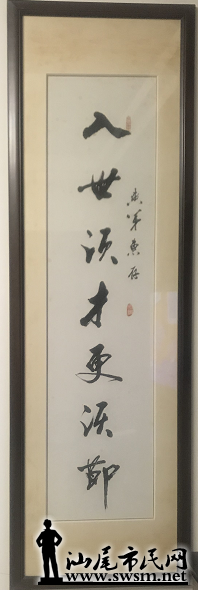 入世须才更须节
汕尾市民网
www.swsm.net